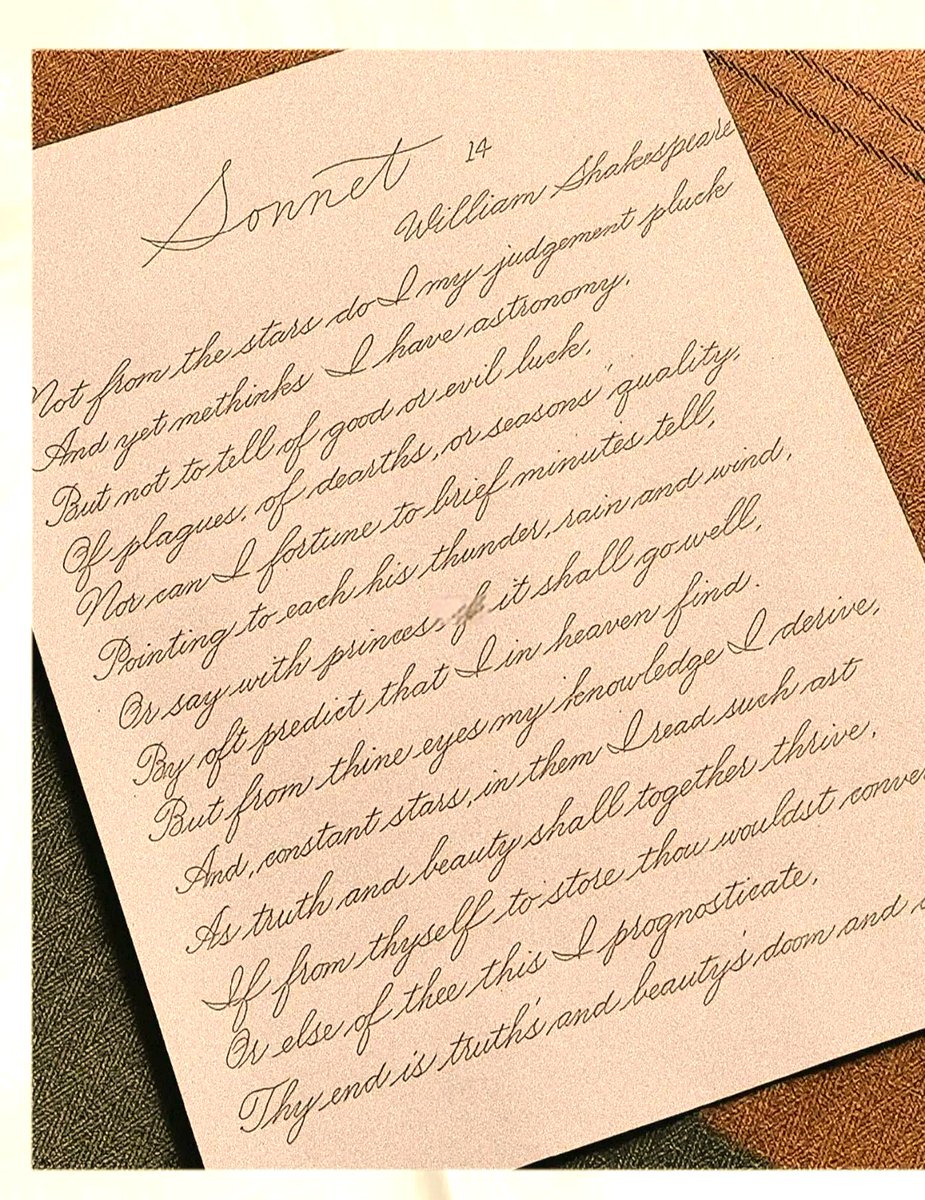 Sonnet 14
William Shakespeare
Not from the stars do I my judgement pluck
And yet methinks I have astronomy,
But not to tell of good or evil luck,
Of plagues, of dearths, or seasons' quality;
Nor can I fortune to brief minutes tell,
Pointing to each his thunder, rain and wind,
Or say with princes if it shall go well,
By oft predict that I in heaven find.
But from thine eyes my knowledge I derive,
And, constant stars, in them I read such art
As truth and beauty shall together thrive,
If from thyself to store thou wouldst
Or else of thee this I prognosticate,
Thy end is truth's and beauty's doom and